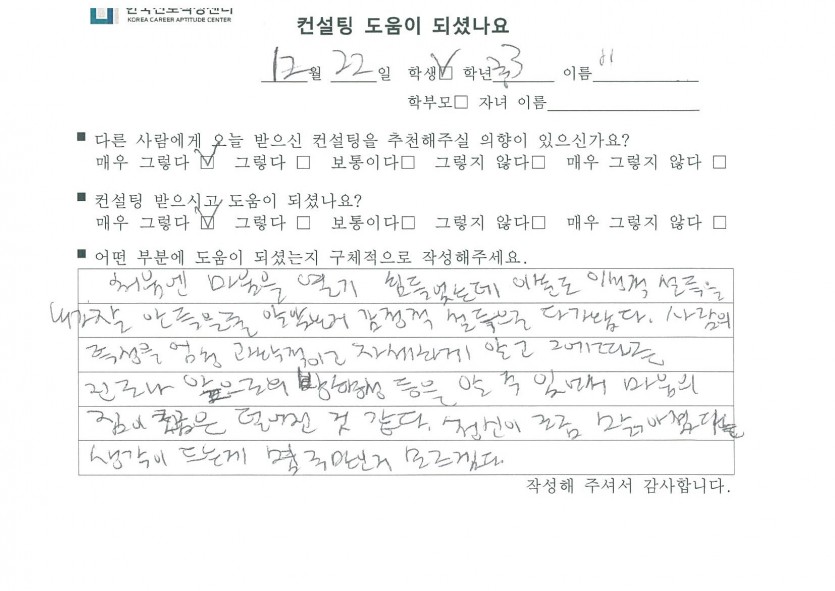 한국진로적성센터
KOREA CAREER APTITUDE CENTER
컨설팅 도움이 되셨나요
12월 22일 학생☑ 학년 고3 이름
학부모□ 자녀 이름
■ 다른 사람에게 오늘 받으신 컨설팅을 추천해주실 의향이 있으신가요?
매우 그렇다 ☑ 그렇다 □ 보통이다□ 그렇지 않다□ 매우 그렇지 않다 □
■ 컨설팅 받으시고 도움이 되셨나요?
매우 그렇다 ☑ 그렇다 □ 보통이다□ 그렇지 않다□ 매우 그렇지 않다 □
■ 어떤 부분에 도움이 되셨는지 구체적으로 작성해주세요.
처음엔 마음을 열기 힘들었는데 이성적 설득을
내가 잘 안 감정적 설득으로 다가왔다. 사람의
특성을 엄청 과학적이고 자세하게 알고 그에 따른
진로나 앞으로의 방향성 등을 알 수 있어서 마음의
짐이 조금은 덜어진 것 같다. 정신이 조금
생각이 드는게 몇 모르겠다.
작성해 주셔서 감사합니다.